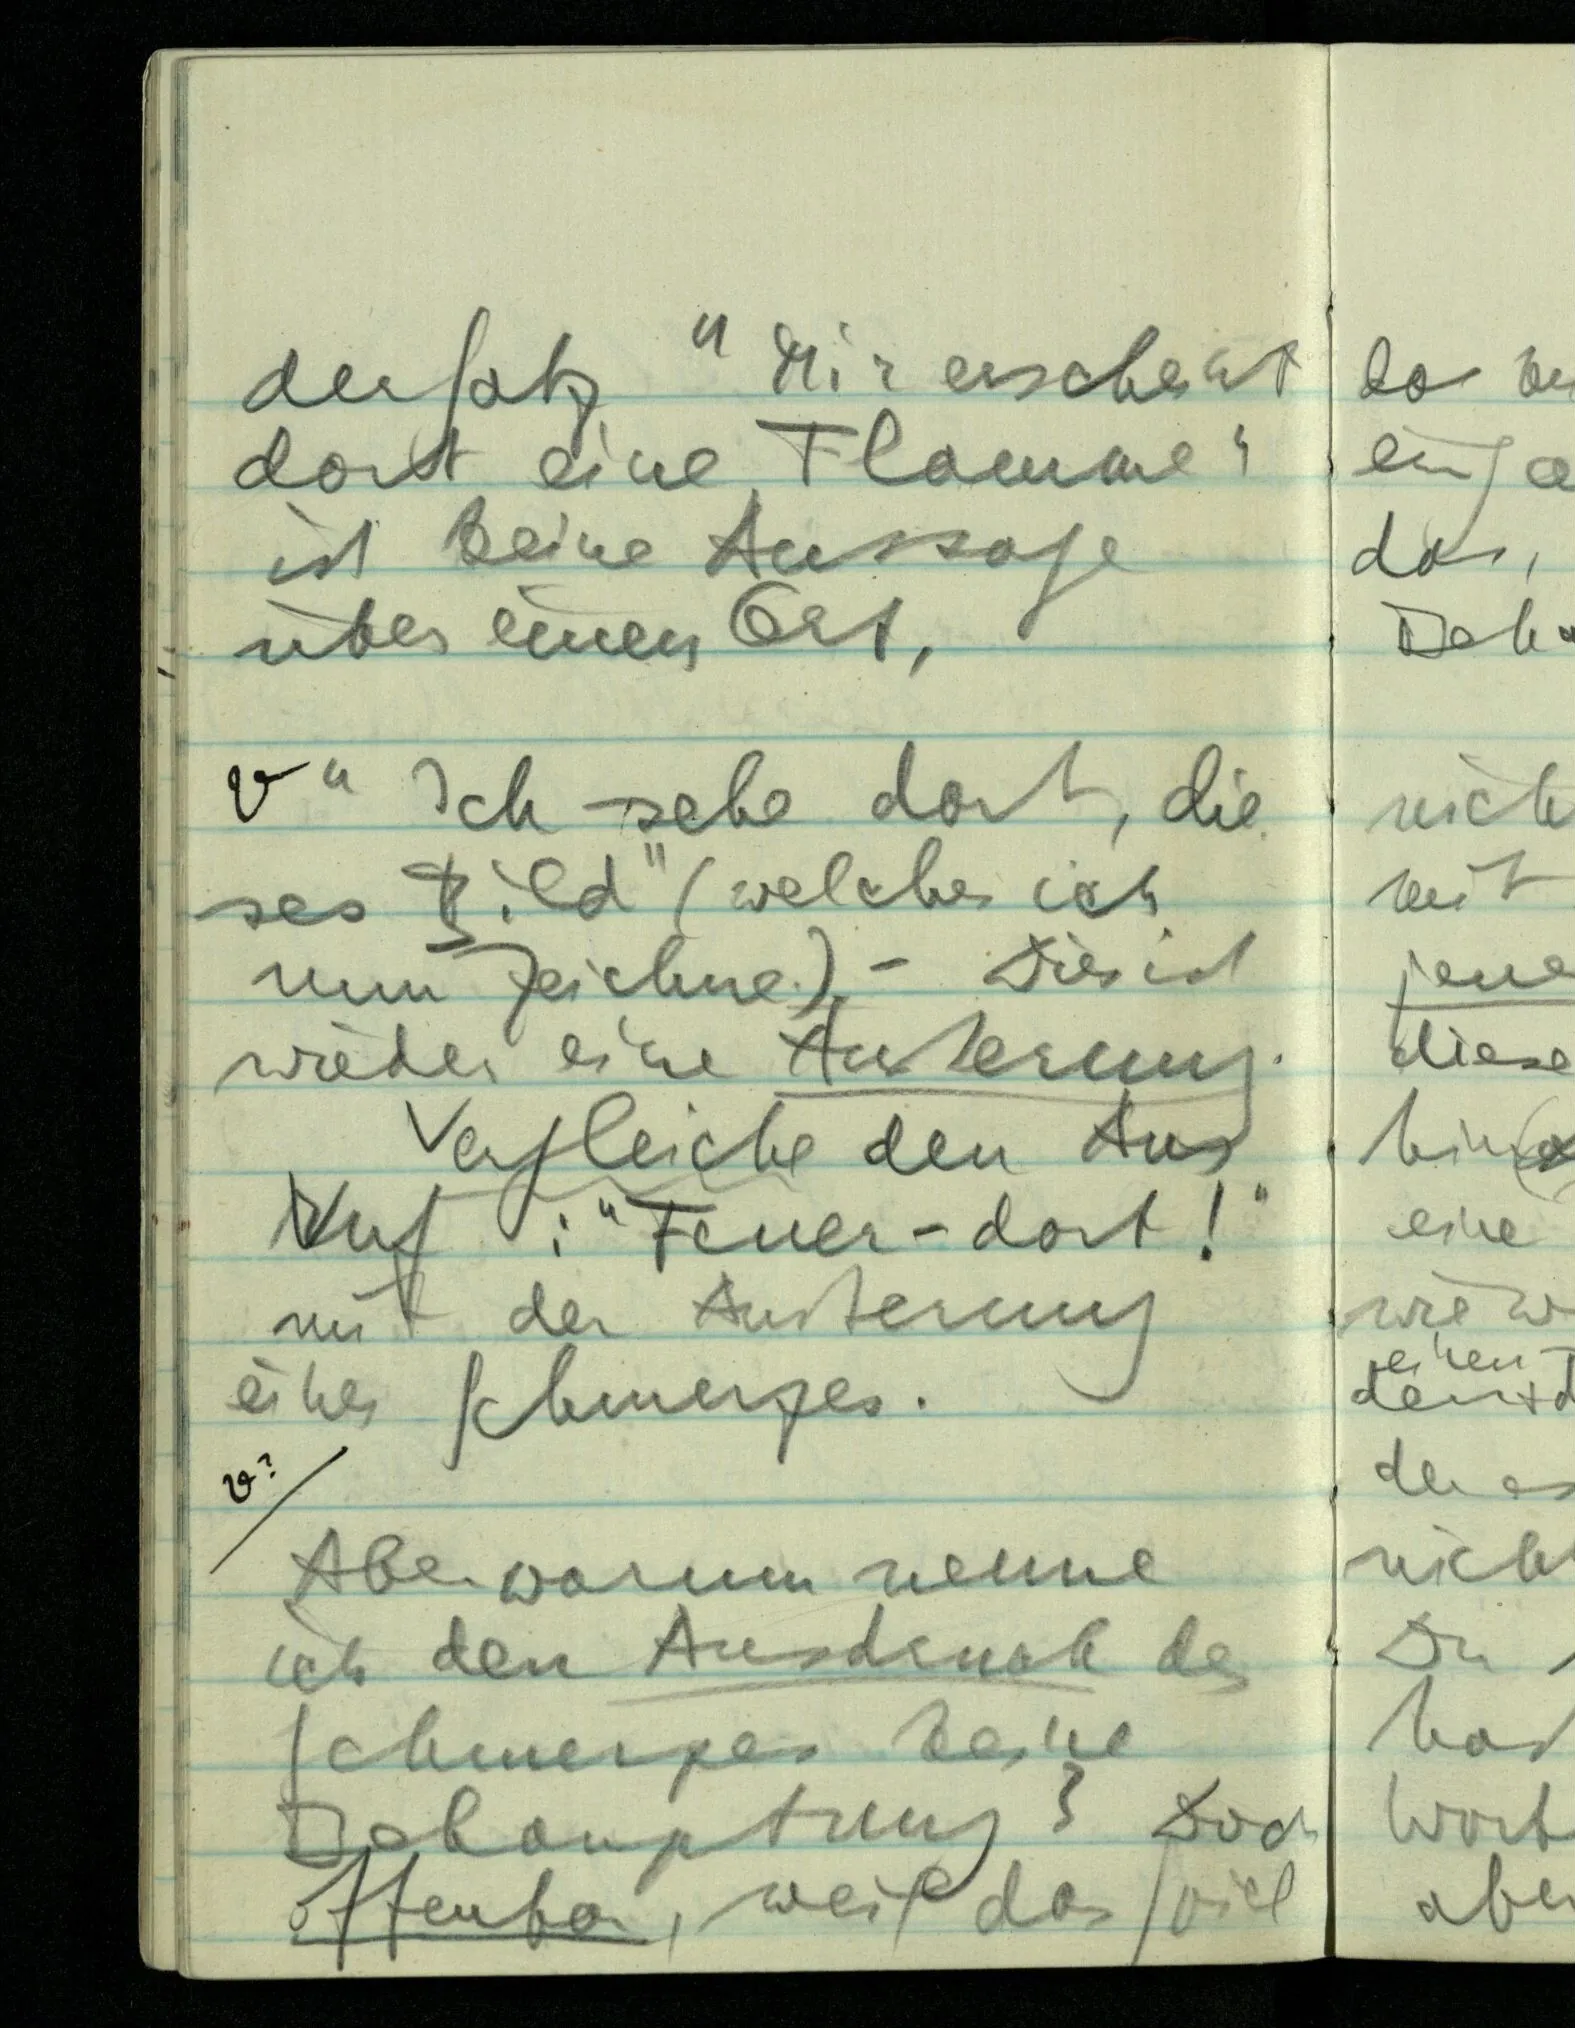 der Satz "Mir erscheint
dort eine Flamme"
ist keine Aussage
über einen Ort,
v " Ich sehe dort, die
ses Bild" (welches ich
nun zeichne). – Dies ist
wieder eine Äußerung.
Vergleiche den Aus
Ruf : "Feuer – dort!"
mit der Äußerung
eines Schmerzes.
v?
Aber warum nenne
ich den Ausdruck des
Schmerzes keine
Behauptung? Doch
offenbar, weil das Spiel
das
ein
das,
nicht
mit
jene
diese
hin
eine
wie
einen
nicht
Du
hast
Wort
aber